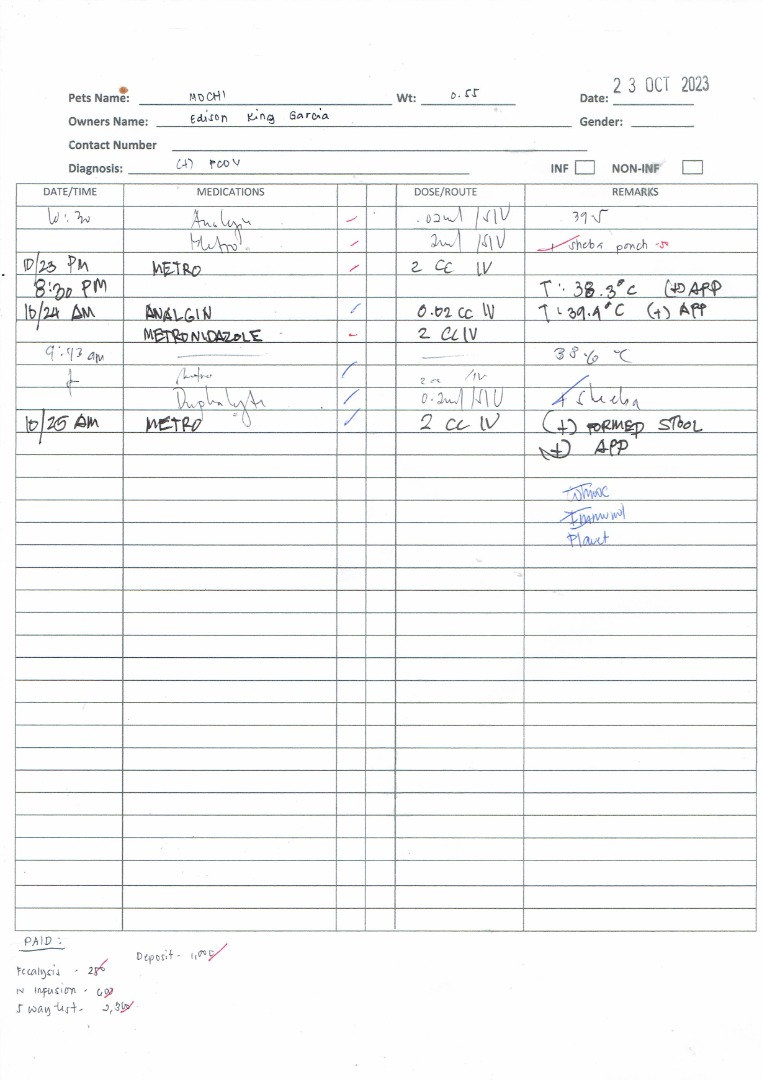 23 OCT 2023
Pets Name: MOCHI Wt: 0.55 Date:
Owners Name: Edison King Garcia Gender:
Contact Number
Diagnosis: (+) PCOV INF NON-INF
DATE/TIME MEDICATIONS DOSE/ROUTE REMARKS
10:30 Analgin .02ml /SIV 39.5
Metro 2ml /SIV + Sheba pouch -50
10/23 PM METRO 2 CC IV
8:30 PM T: 38.3°C (+) APP
10/24 AM ANALGIN 0.02 CC IV T: 39.4°C (+) APP
METRONIDAZOLE 2 CC IV
9:43 am 38.6 °C
Metro 2cc /IV
Duphalyte 0.2ml /SIV + Sheba
10/25 AM METRO 2 CC IV (+) FORMED STOOL
(+) APP
PAID:
Deposit - 1,000
Fecalysis - 250
IV Infusion - 600
5 way test -